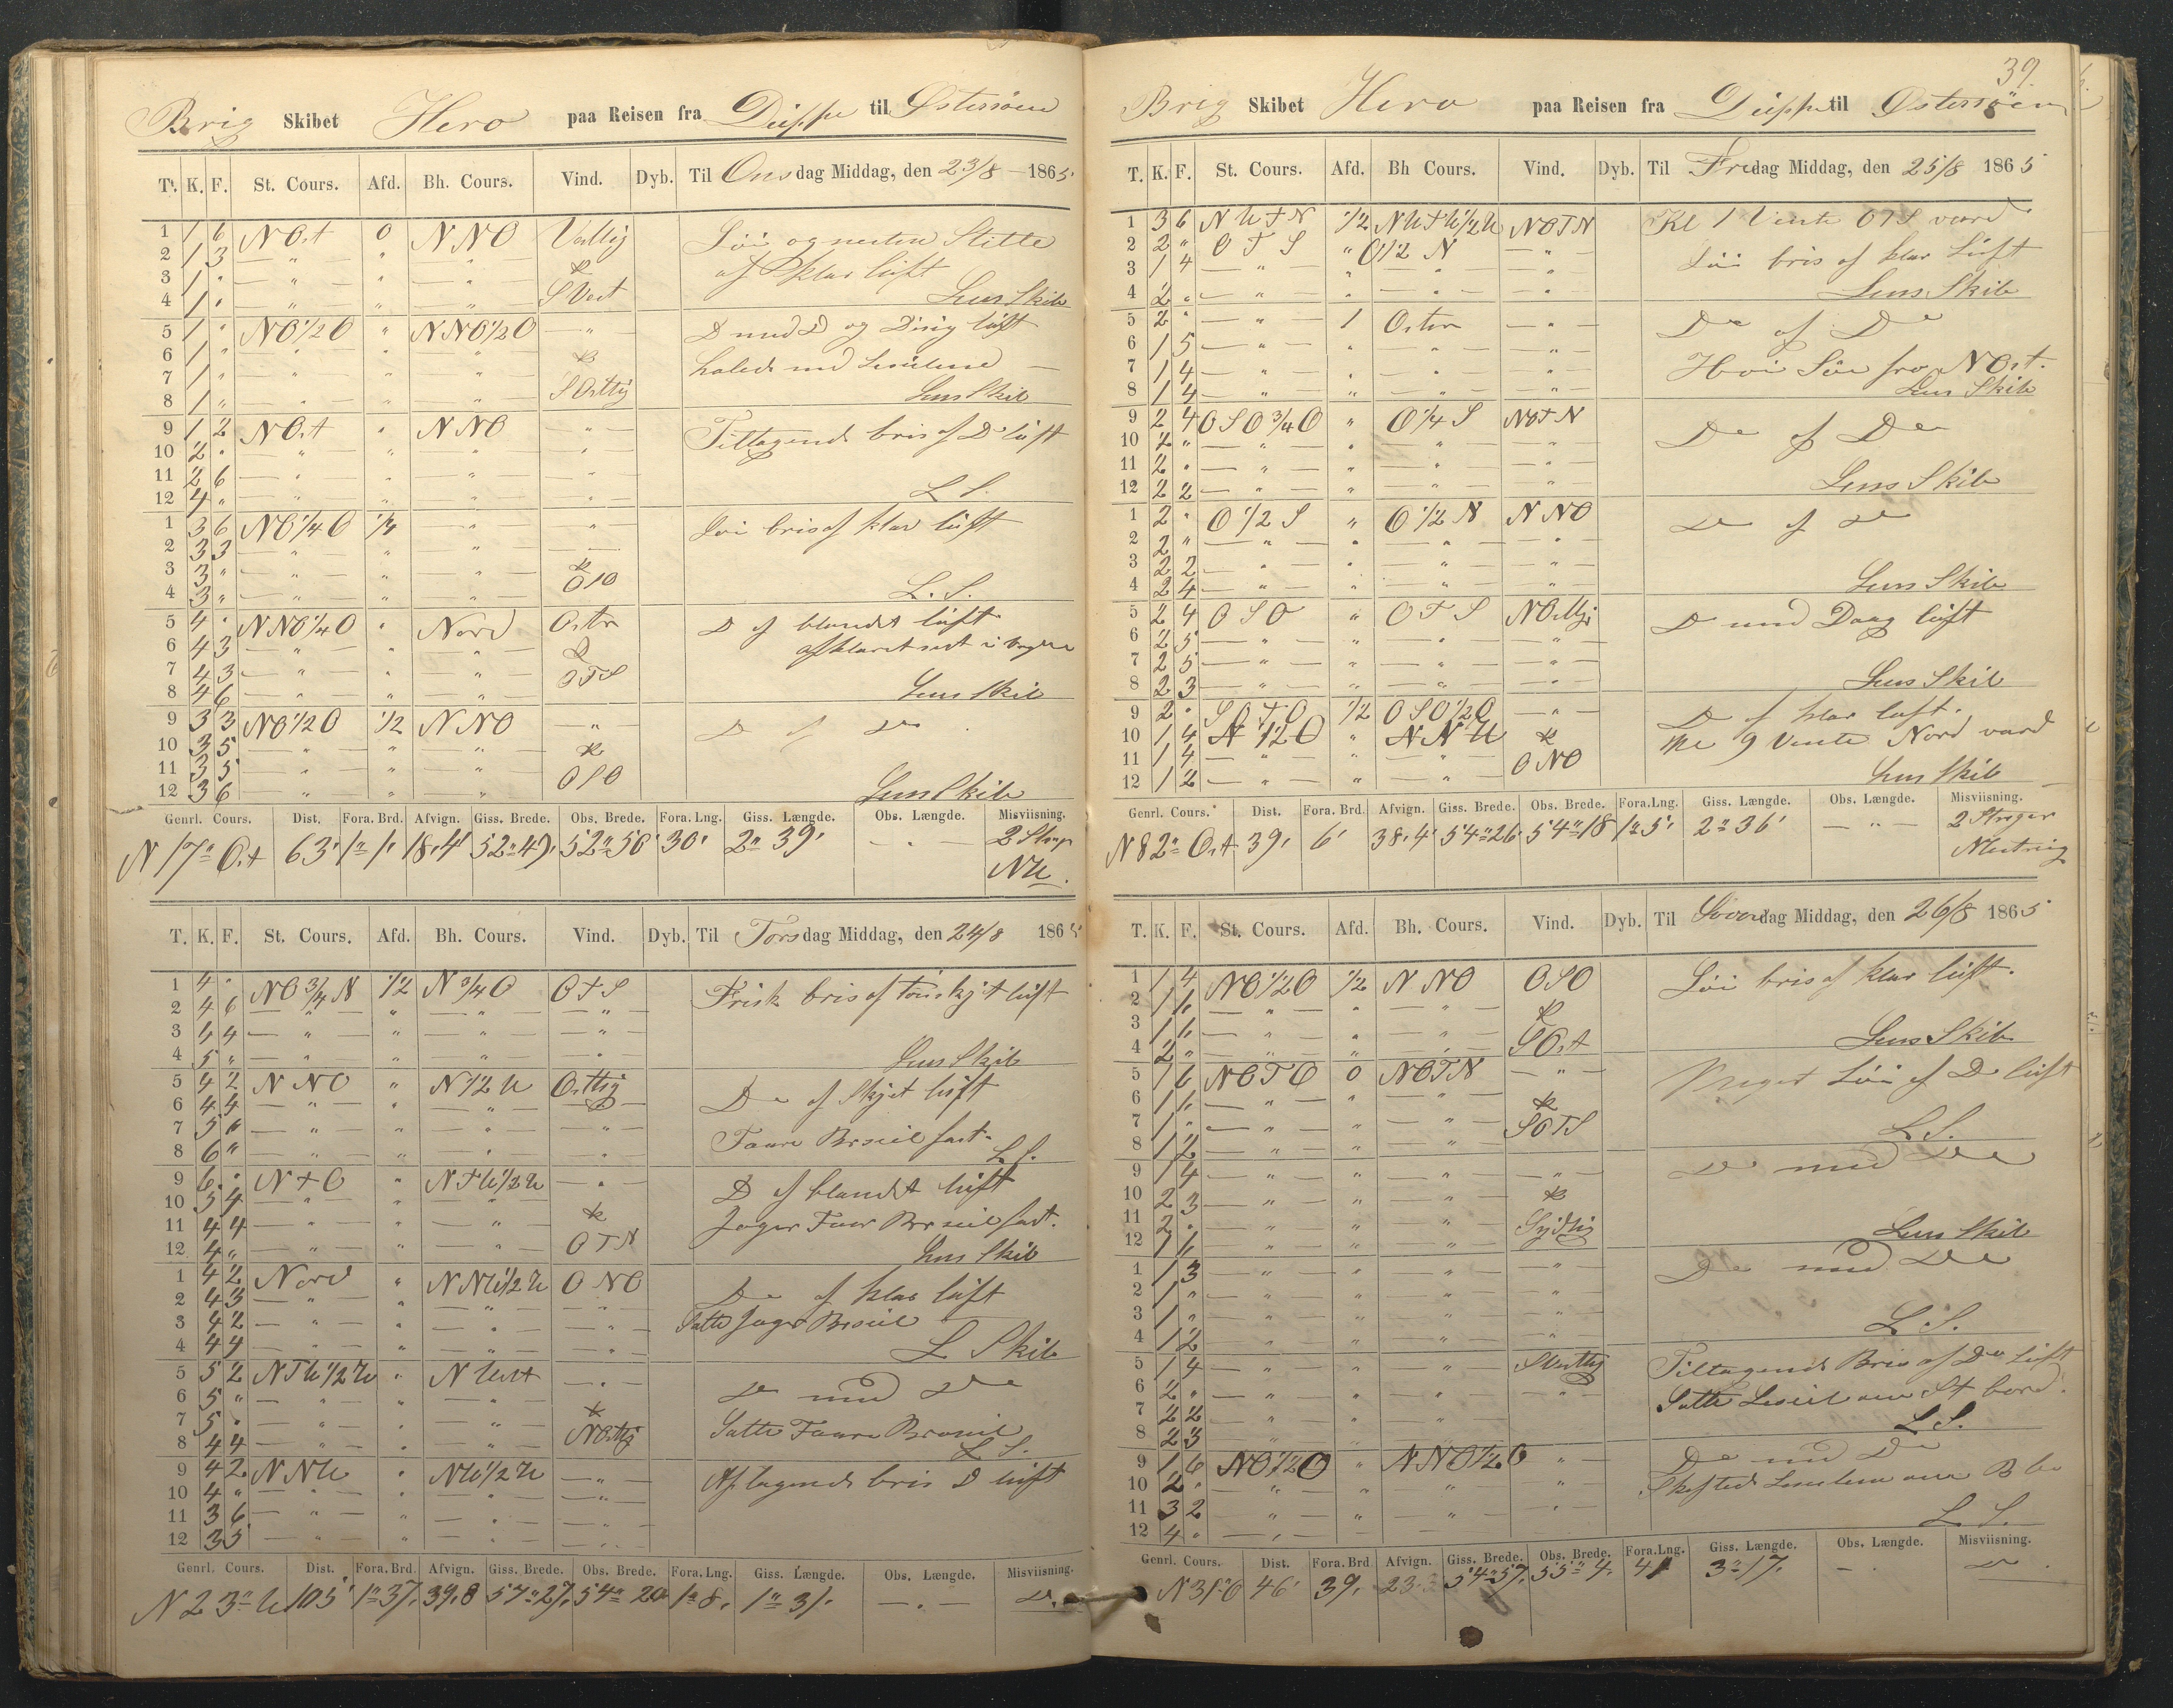 Brig Skibet Hero paa Reisen fra Dieppe til Østersöen
T. K. F. St. Cours. Afd. Bh. Cours. Vind. Dyb. Til Onsdag Middag, den 23/8 - 1865
1 1 6 NOst 0 NNO Vestlig Löi og nesten Stille
2 1 3 — " — " — " — & af klar luft
3 1 " — " — " — " — SVest
4 1 " — " — " — " — Lens Skib
5 1 " NO1/2O " NNO1/2O — " — D med D og Disig luft
6 1 " — " — " — " — &
7 1 " — " — " — " — SOstlig
8 1 " — " — " — " — Lens Skib
9 1 2 NOst " NNO — " — Tiltagende bris af Do luft
10 2 " — " — " — " — " —
11 2 6 — " — " — " — " —
12 4 " — " — " — " — " — L S.
1 3 6 NO1/4O 1/4 — " — " Löi bris af klar luft
2 3 3 — " — " — " —
3 3 " — " — " — " — &
4 3 " — " — " — " — OSO L. S.
5 4 " NNO1/4O " Nord Osten D af blandet luft
6 4 3 — " — " — " — &
7 4 3 — " — " — " — OTS
8 4 6 — " — " — " — Lens Skib
9 3 3 NO1/2O 1/2 NNO — " — D af Do
10 3 5 — " — " — " — &
11 3 5 — " — " — " — OSO
12 3 6 — " — " — " — Lens Skib
Genrl. Cours. Dist. Fora. Brd. Afvign. Giss. Brede. Obs. Brede. Fora. Lng. Giss. Længde. Obs. Længde. Misviisning.
N 17° Ost 63' 1° 1' 18,4 52°49' 52°50' 30' 2° 39' — " — 2 Streg
NW.
T. K. F. St. Cours. Afd. Bh. Cours. Vind. Dyb. Til Torsdag Middag, den 24/8 1865
1 4 " NO3/4N 1/2 N3/4O OTS Frisk bris af
2 4 6 — " — " — " — " —
3 4 4 — " — " — " — " —
4 5 " — " — " — " — " — Lens Skib
5 4 2 NNO " N1/2W Ostlig Do af Skyet luft
6 4 4 — " — " — " —
7 5 " — " — " — " — " —
8 6 " — " — " — " — " — L S.
9 6 " NTO " NTW1/2W — " — D af blandet luft
10 5 4 — " — " — " — &
11 4 4 — " — " — " — Jager
12 4 " — " — " — " — OTN Lens Skib
1 4 2 Nord " NNW1/2W ONO Do af klar luft
2 4 3 — " — " — " — " —
3 4 2 — " — " — " — " — Satte Jager
4 4 4 — " — " — " — " — L Skib
5 5 2 NTW1/2W " NWest — " — Do med Do
6 5 " — " — " — " — &
7 5 " — " — " — " — NOstlig Satte
8 4 4 — " — " — " — L S.
9 4 2 NNW " NW1/2W — " — Aftagende bris D luft
10 4 " — " — " — " — " —
11 3 6 — " — " — " — " —
12 3 5 — " — " — " — " —
Genrl. Cours. Dist. Fora. Brd. Afvign. Giss. Brede. Obs. Brede. Fora. Lng. Giss. Længde. Obs. Længde. Misviisning.
N 23° W 105' 1°37' 39,8 54°27' 54° 20 1° 8' 1° 31' — " — Do
39.
Brig Skibet Hero paa Reisen fra Dieppe til Østersöen
T. K. F. St. Cours. Afd. Bh Cours. Vind. Dyb. Til Fredag Middag, den 25/8 1865
1 3 6 NWTN 1/2 NWTW1/2W NOTN Kl 1 Vente OTS vard
2 2 " OTS " O1/2N — " —
3 1 4 — " — " — " — " Löi bris af klar Luft
4 2 " — " — " — " — " — Lens Skib
5 2 " — " — 1 Osten — " — Do af Do
6 1 5 — " — " — " — " —
7 1 4 — " — " — " — " — Höi Söe fra NOst.
8 1 4 — " — " — " — " — Lens Skib
9 2 4 OSO3/4O " O1/4S NOTN Do af Do
10 2 " — " — " — " — " —
11 2 " — " — " — " — " —
12 2 2 — " — " — " — " — Lens Skib
1 2 " O1/2S " O1/2N NNO Do af Do
2 2 " — " — " — " — " —
3 2 2 — " — " — " — " —
4 2 4 — " — " — " — " — Lens Skib
5 2 4 OSO " OTS NOstlig D med Do luft
6 2 5 — " — " — " — " —
7 2 5 — " — " — " — " —
8 2 3 — " — " — " — " — Lens Skib
9 2 " SOTO 1/2 OSO1/2O — " — Do af klar luft.
10 1 4 N1/2O " NNW & Kl 9 Vente Nord vard
11 1 4 — " — " — " — ONO
12 1 2 — " — " — " — Lens Skib
Genrl. Cours. Dist. Fora. Brd. Afvign. Giss. Brede. Obs. Brede. Fora. Lng. Giss. Længde. Obs. Længde. Misviisning.
N 82° Ost 39' 6' 38,4 54°26 54°18 1°5' 2° 36' — " — 2 Streger
T. K. F. St. Cours. Afd. Bh. Cours. Vind. Dyb. Til Löverdag Middag, den 26/8 1865
1 1 4 NO1/2O 1/2 NNO OSO Löi bris af klar luft.
2 1 6 — " — " — " — &
3 1 6 — " — " — " — SOst Lens Skib
4 2 " — " — " — " —
5 1 6 NOTO 0 NOTN — " — Meget Löi af Do luft
6 1 6 — " — " — " — &
7 1 " — " — " — " — SOTS
8 1 2 — " — " — " — L S.
9 1 4 — " — " — " — " — Do med Do
10 2 3 — " — " — " — &
11 2 " — " — " — " — Sydlig
12 1 6 — " — " — " — Lens Skib
1 1 3 — " — " — " — " — Do med Do
2 1 " — " — " — " — " —
3 1 " — " — " — " — "
4 1 2 — " — " — " — " — L S.
5 1 4 — " — " — " — SVestlig Tiltagende Bris af Do Luft
6 2 " — " — " — " — " — Satte Leseil om St bord.
7 2 2 — " — " — " —
8 2 3 — " — " — " — L S.
9 1 6 NO1/2O " NNO1/2O " — Do med Do
10 2 " — " — " — " — " —
11 3 2 — " — " — " — " —
12 4 " — " — " — " — L S.
Genrl. Cours. Dist. Fora. Brd Afvign. Giss. Brede. Obs. Brede. Fora. Lng. Giss. Længde. Obs. Længde. Misviisning.
N 31° O 46' 39' 23, 54°57' 55° 4' 41 3° 17' — " Do